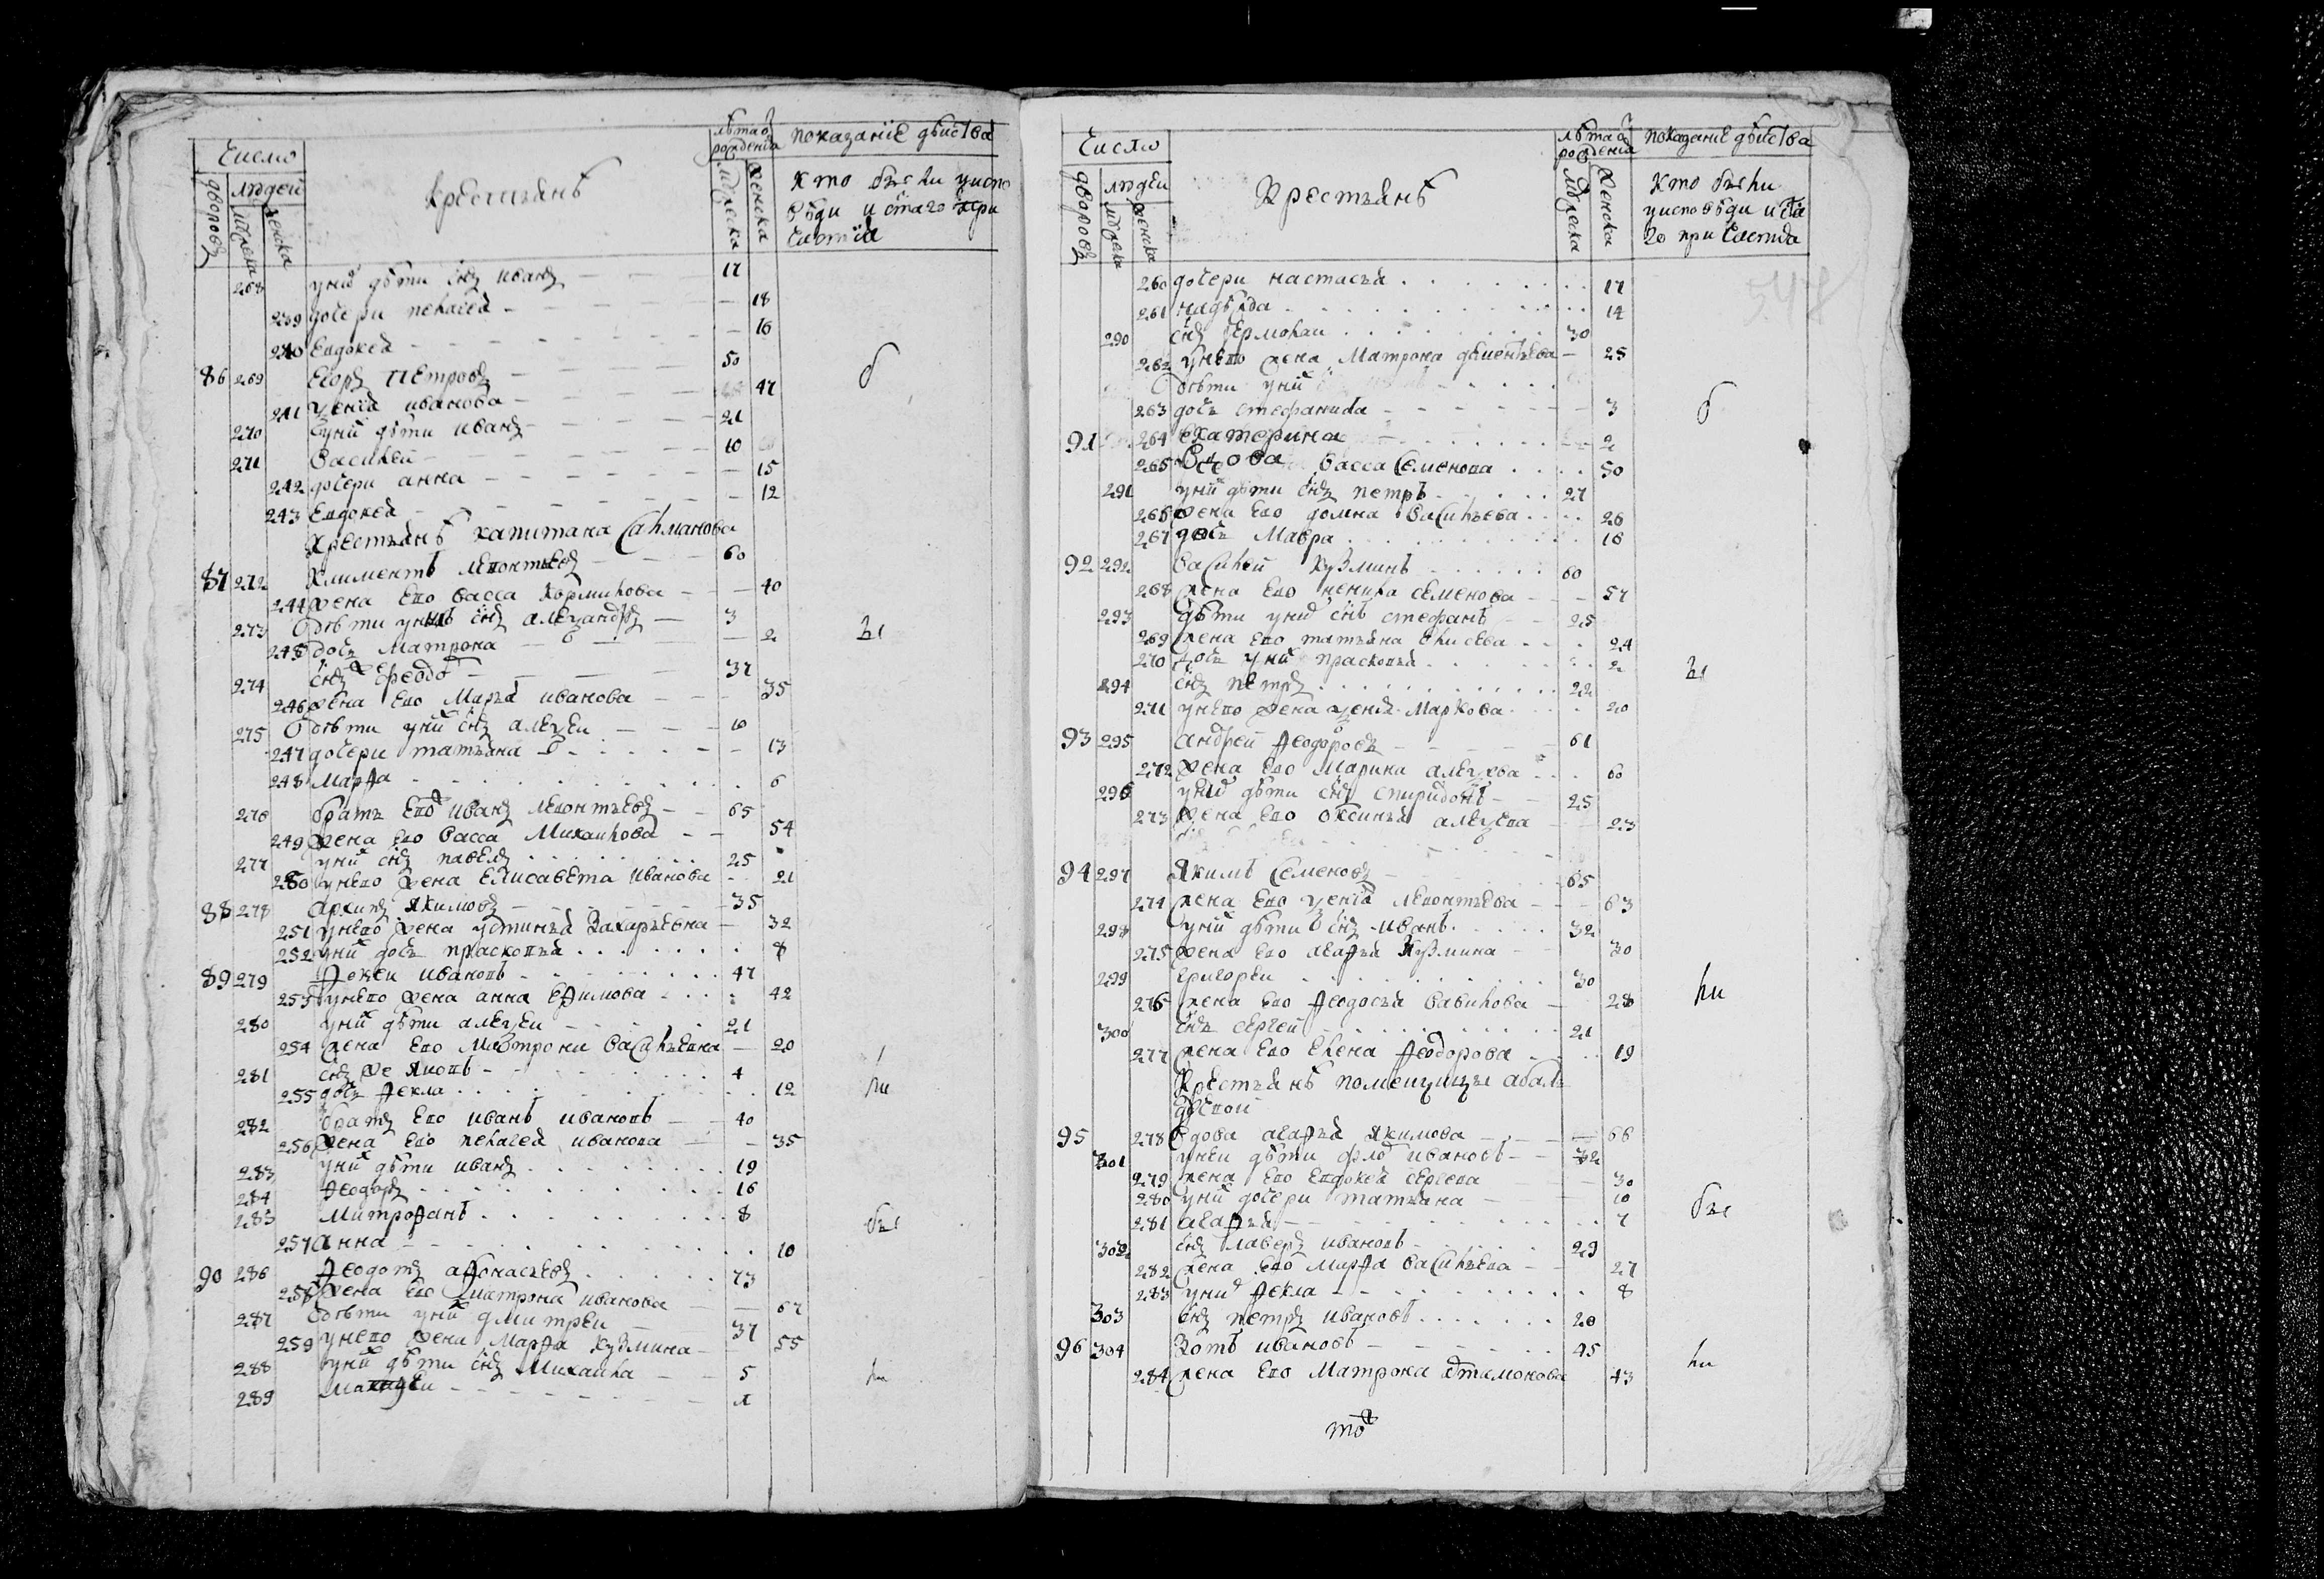 Число
Крестьянъ
лѣта ѿ рожденїа
показанїе дѣиства
дворовъ
людеи
мужеска
женска
мужеска
женска
кто были уиспо
вѣди и стаго при
частїа
268 унихъ дѣти снъ иванъ — — 17
239 дочери пелагея — — — 18
240 Евдокея — — — 16
86 269 Егоръ Петровъ — — 50
241 иванова — — — 47
270 уних дѣти иванъ — — 21
271 Василеи — — — 10
242 дочери анна — — — 15
243 Евдокея — — — 12
Крестьянѣ капитана Салманова
87 272 Климентъ Левонтьевъ — — 60
244 жена ево васса Кормилова — — 40
273 дѣти унихъ снъ алеѯандръ — 3
245 дочь Матрона — — 2
274 снъ — — 37
246 жена ево Марья иванова — — 35
275 дѣти уних снъ алеѯеи — — 10
247 дочери татьяна — — 13
248 Марѳа — — 6
276 братъ ево иванъ Левонтьевъ — 65
249 жена ево васса Михаилова — — 54
277 уних снъ павелъ . . . . 25
250 унево жена Елисавета иванова — 21
88 278 архипъ якимовъ — — 35
251 унево жена устинья Захарьевна — 32
252 уних дочь прасковья . . . . 8
89 279 иванов . . . . 47
253 унево жена анна Еѳимова . . . 42
280 уних дѣти алеѯеи — . . . 21
254 жена ево Мавтрона василъевна — 20
281 снъ же яков — . . . . 4
255 дочь Ѳекла . . . . 12
282 братъ ево иванъ ивановъ — — 40
256 жена ево пелагея иванова — — 35
283 уних дѣти иванъ . . . . 19
284 Ѳеодоръ . . . . 16
285 Митроѳанъ . . . . 8
257 анна — . . . . 10
90 286 Ѳеодотъ аѳонасьевъ . . . . 73
258 жена ево Матрона иванова — — 67
287 дѣти уних дмитреи — — 37
259 унево жена Марѳа кузмина — 55
288 уних дѣти снъ Михаила — — 5
289 — — — 1
б
ы
ли
бы
ли
Число
Крестьянѣ
лѣта ѿ рожденїа
показанїе дѣиства
дворовъ
людеи
мужеска
женска
мужеска
женска
кто были
уисповѣди и ста
го причастиа
260 дочери настасья . . . . 17
261 надѣжда . . . . 14
290 снъ Ермолаи . . . . 30
262 унево жена Матрона — 25
дѣти уних
263 дочь стефанида — — — 3
91 264 Екатерина — . . . . 2
265 Вдова васса Семенова . . . . 50
291 уних дѣти снъ петръ . . . . 27
266 жена ево домна Василъева . . . . 26
267 дочь Мавра . . . . 16
92 292 Василеи Кузминъ . . . . 60
268 жена ево ненила семенова — — 57
293 дѣти уних снъ стефанъ — — 25
269 жена ево татьяна елисева . . . 24
270 дочь уних прасковья . . . . 2
294 снъ петръ . . . . 22
271 унево жена Маркова . . . . 20
93 295 андреи Ѳеодоровъ — — — 61
272 жена ево Марина алеѯеева . . . 60
296 уних дѣти снъ спиридонъ — — 25
273 жена ево оксинья алеѯева — 23
94 297 Якимъ Семеновъ — . . . . 65
274 жена ево Левонтьева — — 63
298 уних дѣти снъ иванъ . . . . 32
275 жена ево агаѳья Кузмина — 30
299 григореи . . . . 30
276 жена ево Ѳеодосья Савилова — 28
300 снъ сергеи . . . . 21
277 жена ево елена Ѳеодорова . . . 19
Крестьянѣ помещицы
95 278 вдова агаѳья якимова — . — 66
301 унеи дѣти ивановъ — — 32
279 жена ево Евдокея сергева — 30
280 уних дочери татьяна — 10
281 агаѳья — . . . . 7
302 снъ лаверъ ивановъ . . . . 29
282 жена ево Марѳа Василъева — — 27
283 уних Ѳекла — . . . . 8
303 снъ петръ ивановъ . . . . 20
96 304 Зотъ ивановъ — . . . . 45
284 жена ево Матрона 43
б
ы
ли
бы
ли